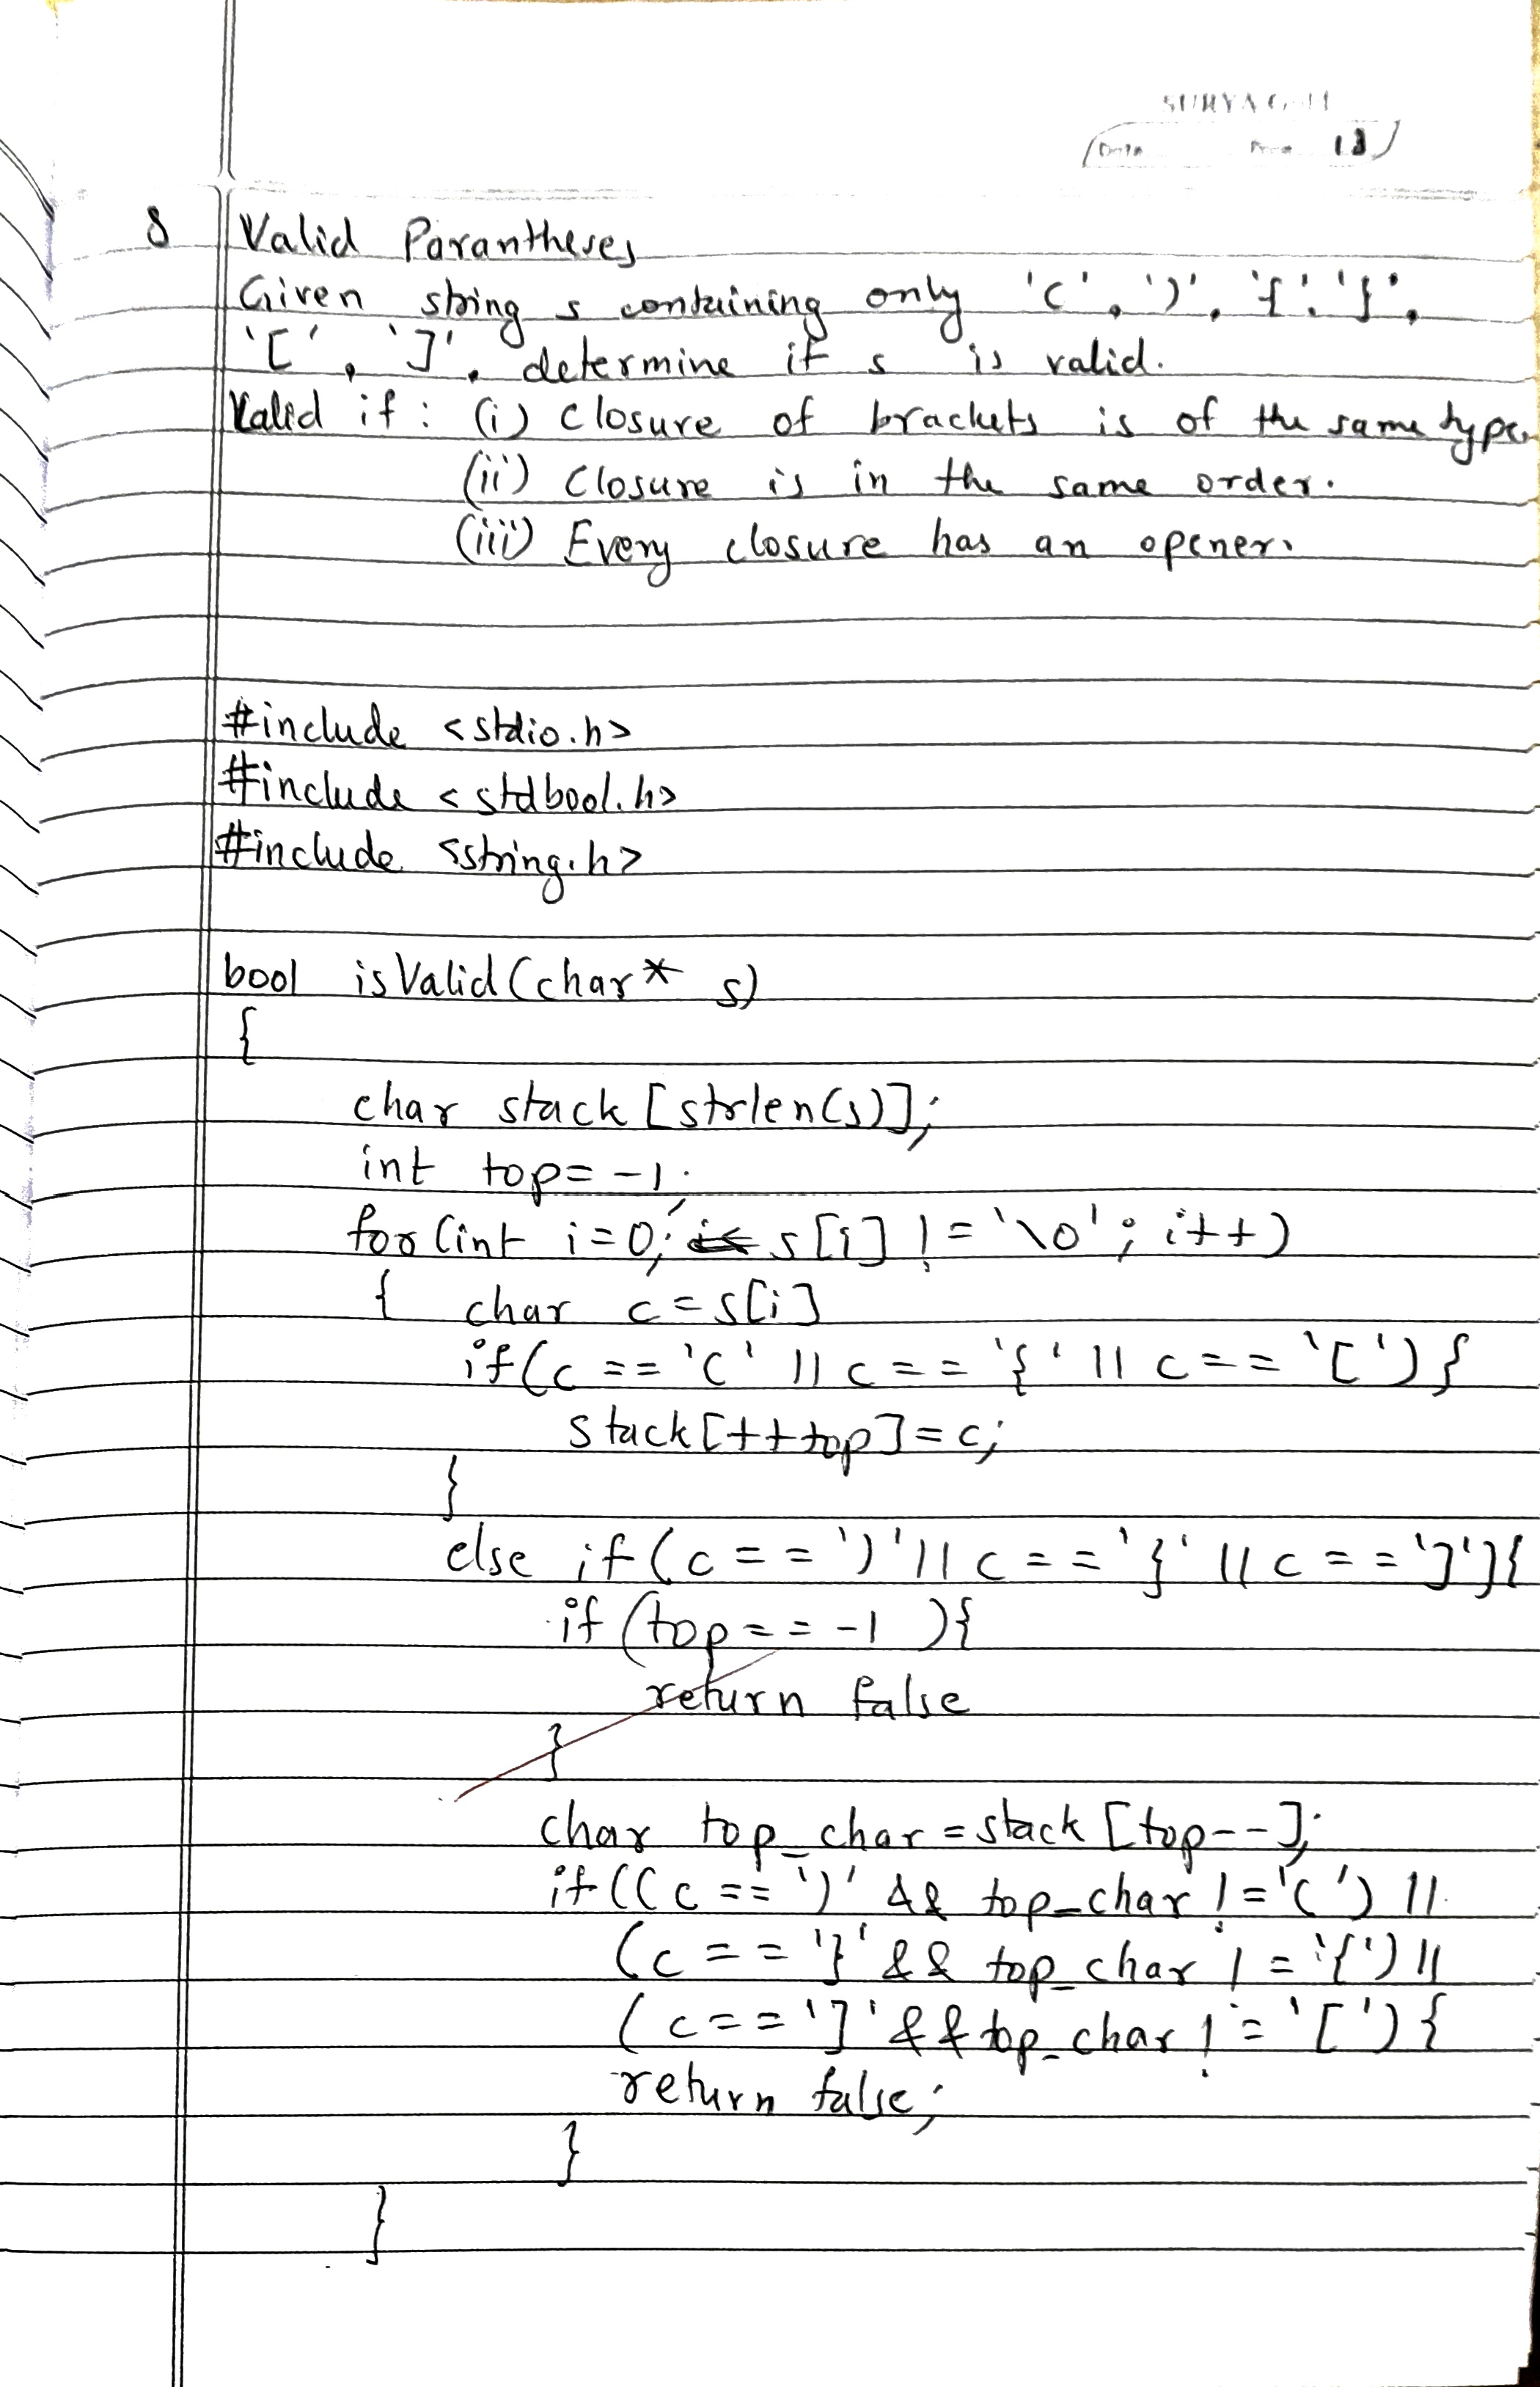 SURYA Gold
Date Page 18
8 Valid Parantheses
Given string s containing only '(', ')', '{', '}',
'[', ']', determine if s is valid.
Valid if: (i) Closure of brackets is of the same type.
(ii) Closure is in the same order.
(iii) Every closure has an opener.
#include <stdio.h>
#include <stdbool.h>
#include <string.h>
bool isValid(char* s)
{
char stack [strlen(s)];
int top = -1;
for (int i=0; s[i] != '\0'; i++)
{ char c = s[i]
if(c == '(' || c == '{' || c == '['){
stack[++top] = c;
}
else if (c == ')' || c == '}' || c == ']'){
if (top == -1 ){
return false
}
char top_char = stack [top--];
if((c == ')' && top_char != '(') ||
(c == '}' && top_char != '{') ||
(c == ']' && top_char != '[') {
return false;
}
}